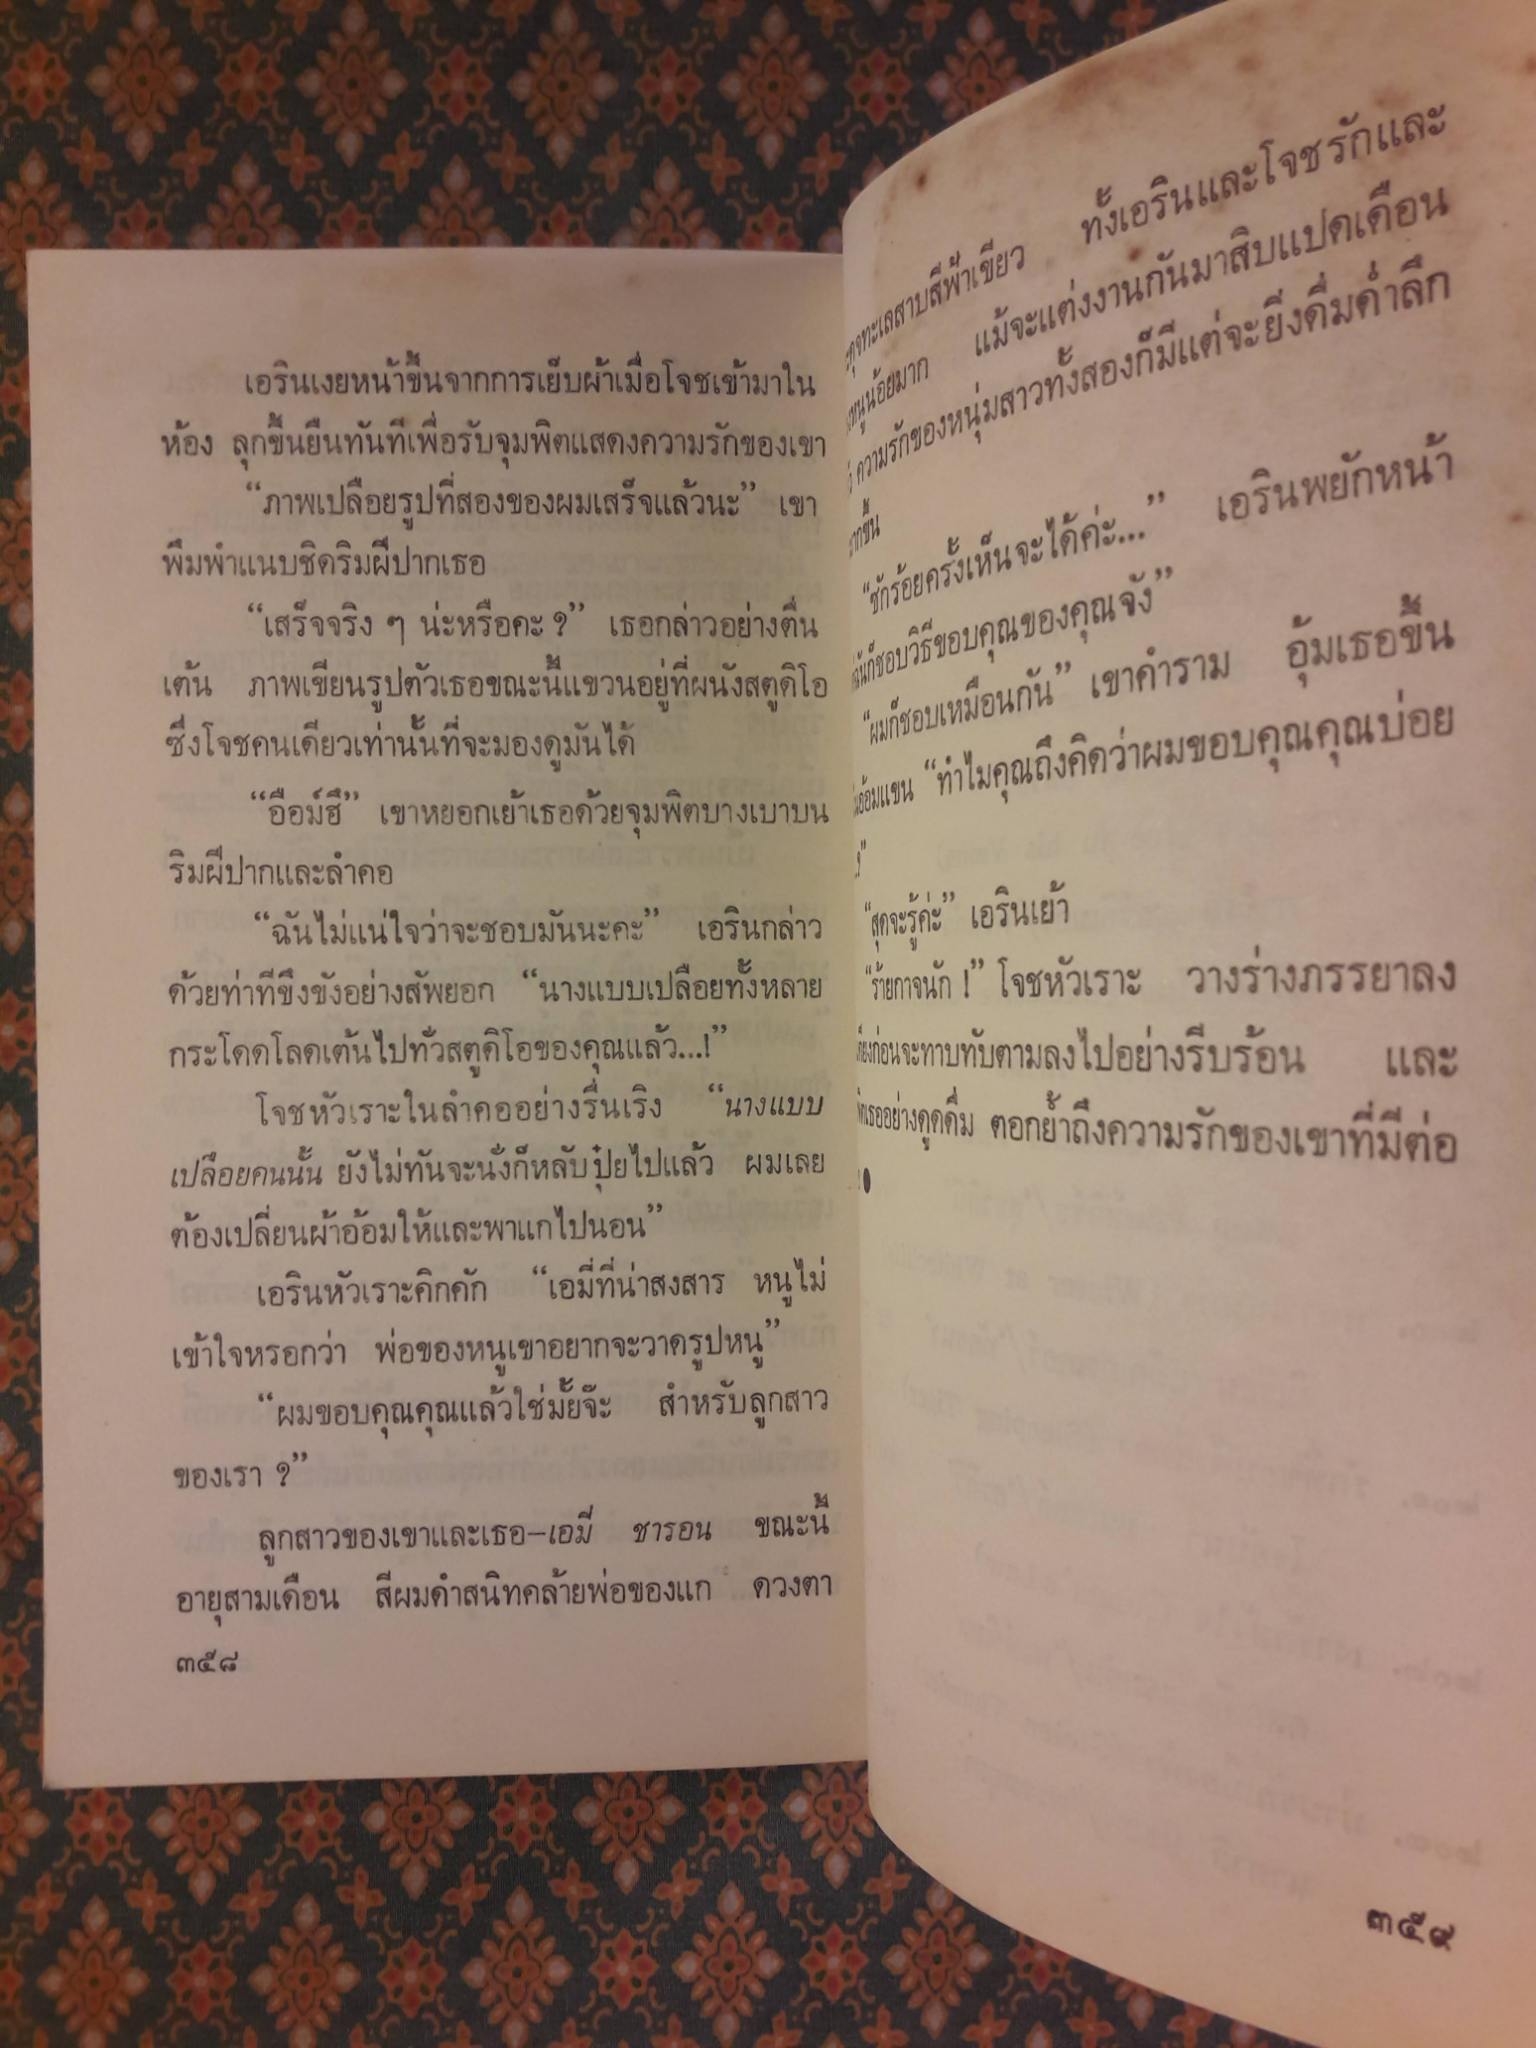 เอรินเงยหน้าขึ้นจากการเย็บผ้าเมื่อโจชเข้ามาใน
ห้อง ลุกขึ้นยืนทันทีเพื่อรับจุมพิตแสดงความรักของเขา
“ภาพเปลือยรูปที่สองของผมเสร็จแล้วนะ” เขา
พึมพำแนบชิดริมฝีปากเธอ
“เสร็จจริง ๆ น่ะหรือคะ ?” เธอกล่าวอย่างตื่น
เต้น ภาพเขียนรูปตัวเธอขณะนี้แขวนอยู่ที่ผนังสตูดิโอ
ซึ่งโจชคนเดียวเท่านั้นที่จะมองดูมันได้
“อือม์ฮึ” เขาหยอกเย้าเธอด้วยจุมพิตบางเบาบน
ริมฝีปากและลำคอ
“ฉันไม่แน่ใจว่าจะชอบมันนะคะ” เอรินกล่าว
ด้วยท่าทีขึงขังอย่างสัพยอก “นางแบบเปลือยทั้งหลาย
กระโดดโลดเต้นไปทั่วสตูดิโอของคุณแล้ว...!”
โจชหัวเราะในลำคออย่างรื่นเริง “นางแบบ
เปลือยคนนั้น ยังไม่ทันจะนั่งก็หลับปุ๋ยไปแล้ว ผมเลย
ต้องเปลี่ยนผ้าอ้อมให้และพาแกไปนอน”
เอรินหัวเราะคิกคัก “เอมี่ที่น่าสงสาร หนูไม่
เข้าใจหรอกว่า พ่อของหนูเขาอยากจะวาดรูปหนู”
“ผมขอบคุณคุณแล้วใช่มั้ยจ๊ะ สำหรับลูกสาว
ของเรา ?”
ลูกสาวของเขาและเธอ–เอมี่ ชารอน ขณะนี้
อายุสามเดือน สีผมดำสนิทคล้ายพ่อของแก ดวงตา
๓๕๘
ทะเลสาบสีฟ้าเขียว ทั้งเอรินและโจชรักและ
หนูน้อยมาก แม้จะแต่งงานกันมาสิบแปดเดือน
ความรักของหนุ่มสาวทั้งสองก็มีแต่จะยิ่งดื่มด่ำลึก
“ซักร้อยครั้งเห็นจะได้ค่ะ...” เอรินพยักหน้า
ชอบวิธีขอบคุณของคุณจัง”
“ผมก็ชอบเหมือนกัน” เขาคำราม อุ้มเธอขึ้น
อ้อมแขน “ทำไมคุณถึงคิดว่าผมขอบคุณคุณบ่อย
“สุดจะรู้ค่ะ” เอรินเย้า
“ร้ายกาจนัก !” โจชหัวเราะ วางร่างภรรยาลง
ก่อนจะทาบทับตามลงไปอย่างรีบร้อน และ
เธออย่างดูดดื่ม ตอกย้ำถึงความรักของเขาที่มีต่อ
๓๕๙